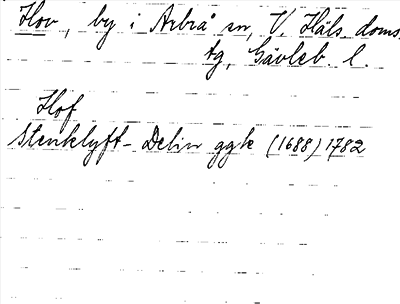 Hov, by i Arbrå sn, V. Häls. doms.
tg, Gävleb. l.
Hof
Stenklyft-Delin ggk (1688) 1782